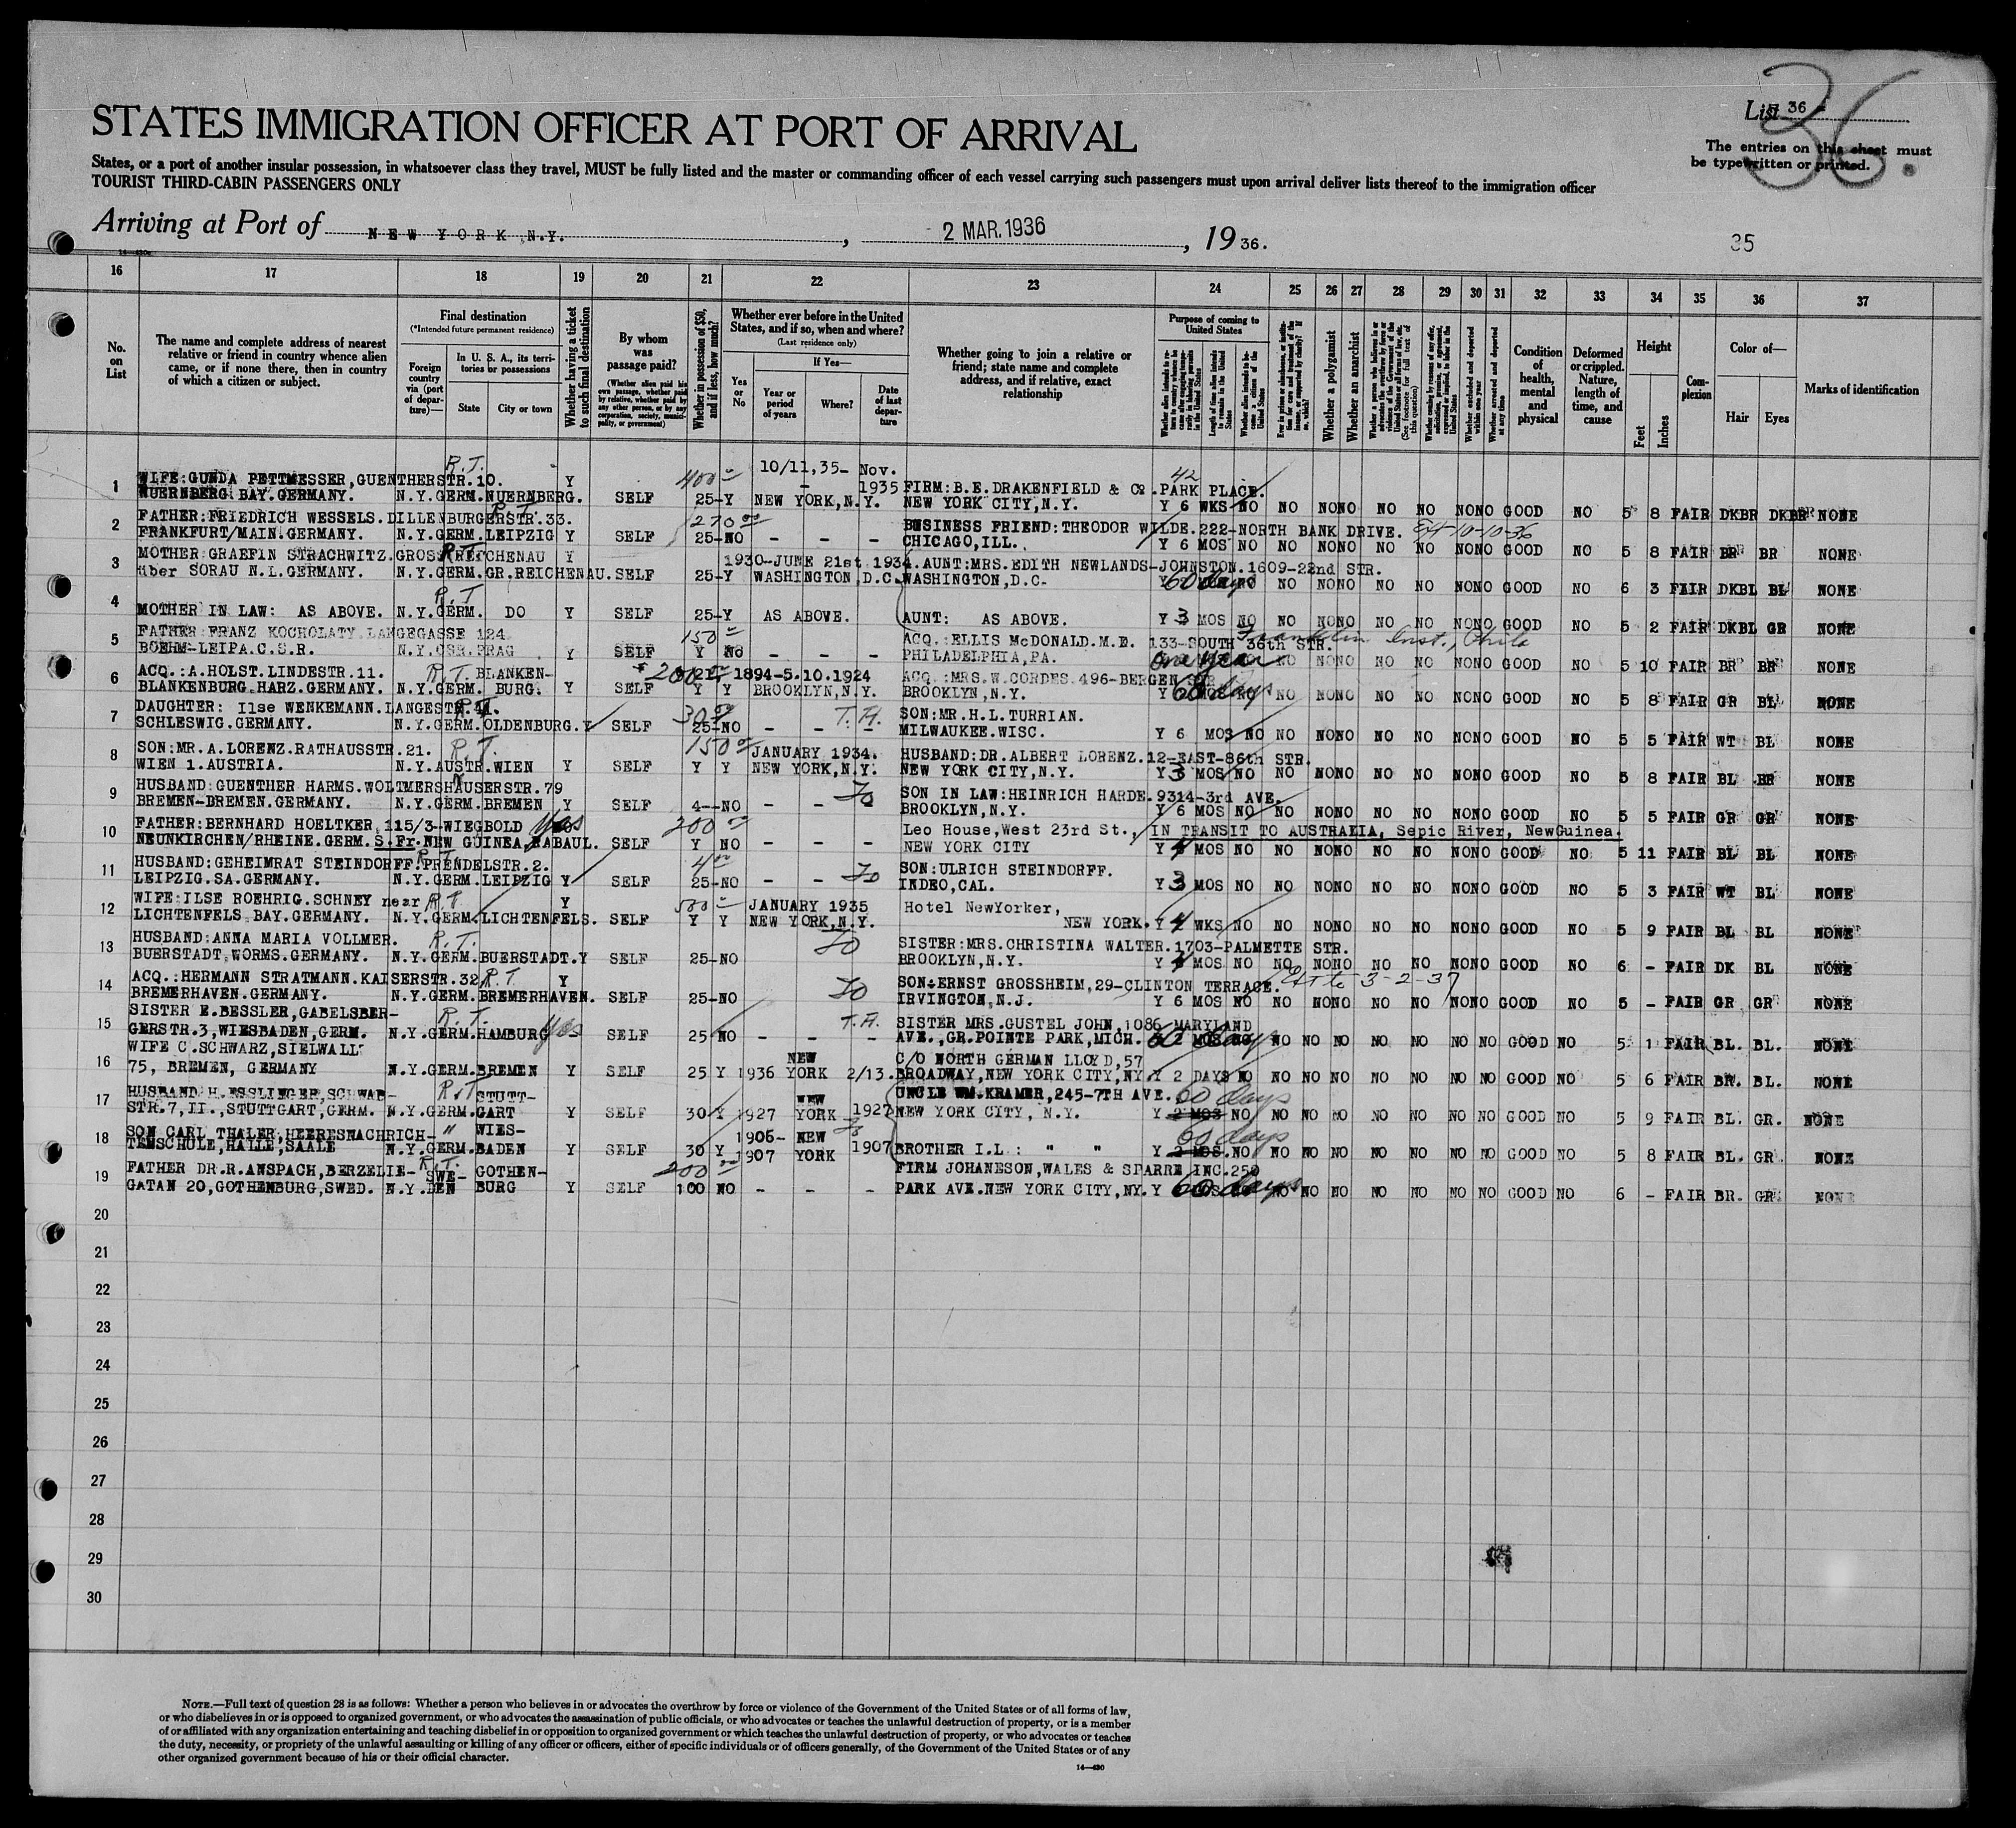 List 36
36.
STATES IMMIGRATION OFFICER AT PORT OF ARRIVAL
The entries on this sheet must
be typewritten or printed.
States, or a port of another insular possession, in whatsoever class they travel, MUST be fully listed and the master or commanding officer of each vessel carrying such passengers must upon arrival deliver lists thereof to the immigration officer
TOURIST THIRD-CABIN PASSENGERS ONLY
Arriving at Port of NEW YORK, N.Y. , 2 MAR. 1936 , 1936.
35
16 17 18 19 20 21 22 23 24 25 26 27 28 29 30 31 32 33 34 35 36 37
No. on List
The name and complete address of nearest relative or friend in country whence alien came, or if none there, then in country of which a citizen or subject.
Final destination
(*Intended future permanent residence)
Foreign country via (port of departure)—
In U. S. A., its territories or possessions
State
City or town
Whether having a ticket to such final destination
By whom was passage paid?
(Whether alien paid his own passage, whether paid by relative, whether paid by any other person, or by any corporation, society, municipality, or government)
Whether in possession of $50, and if less, how much?
Whether ever before in the United States, and if so, when and where?
(Last residence only)
Yes or No
If Yes—
Year or period of years
Where?
Date of last departure
Whether going to join a relative or friend; state name and complete address, and if relative, exact relationship
Purpose of coming to United States
Length of time alien intends to remain in the United States
Whether alien intends to become a citizen of the United States
Whether a polygamist
Whether an anarchist
(See footnote for full text of this question)
Whether excluded and deported within one year
Whether arrested and deported at any time
Condition of health, mental and physical
Deformed or crippled. Nature, length of time, and cause
Height
Feet
Inches
Complexion
Color of—
Hair
Eyes
Marks of identification
R.T. 400 10/11,35- Nov. 42
1 WIFE:GUNDA PETTMESSER,GUENTHERSTR.10. Y 1935 FIRM:B.E.DRAKENFIELD & Co.PARK PLACE.
NUERNBERG BAY.GERMANY. N.Y.GERM.NUERNBERG. SELF 25-Y NEW YORK,N.Y. NEW YORK CITY,N.Y. Y 6 WKS NO NO NONO NO NO NONO GOOD NO 5 8 FAIR DKBR DKBR NONE
2 FATHER:FRIEDRICH WESSELS.DILLENBURGERSTR.33. R.T. 270 BUSINESS FRIEND:THEODOR WILDE.222-NORTH BANK DRIVE. Ext-10-10-36
FRANKFURT/MAIN.GERMANY. N.Y.GERM.LEIPZIG Y SELF 25-NO - - - CHICAGO,ILL. Y 6 MOS NO NO NONO NO NO NONO GOOD NO 5 8 FAIR BR BR NONE
3 MOTHER GRAEFIN STRACHWITZ.GROSS REICHENAU R.T. Y 1930-JUNE 21st 1934.AUNT:MRS.EDITH NEWLANDS-JOHNSTON.1609-22nd STR.
über SORAU N.L.GERMANY. N.Y.GERM.GR.REICHENAU.SELF 25-Y WASHINGTON,D.C. WASHINGTON,D.C. Y 60 days NO NO NONO NO NO NONO GOOD NO 6 3 FAIR DKBL BL NONE
4 R.T
MOTHER IN LAW: AS ABOVE. N.Y.GERM. DO Y SELF 25-Y AS ABOVE. AUNT: AS ABOVE. Y 3 MOS NO NO NONO NO NO NONO GOOD NO 5 2 FAIR DKBL GR NONE
5 FATHER FRANZ KOCHOLATY LANGEGASSE 124 150 ACQ.:ELLIS McDONALD.M.E. 133-SOUTH 36th STR. Franklin Inst., Phila
BOEHM-LEIPA.C.S.R. N.Y.CSR.PRAG Y SELF Y NO - - - PHILADELPHIA,PA. One Year NO NONO NO NO NONO GOOD NO 5 10 FAIR BR BR NONE
6 ACQ.:A.HOLST.LINDESTR.11. R.T. BLANKEN- $200 1894-5.10.1924 ACQ.:MRS.W.CORDES.496-BERGEN STR.
BLANKENBURG.HARZ.GERMANY. N.Y.GERM. BURG. Y SELF Y Y BROOKLYN,N.Y. BROOKLYN,N.Y. Y 60 days NO NONO NO NO NONO GOOD NO 5 8 FAIR GR BL NONE
7 DAUGHTER: Ilse WENKEMANN.LANGESTR.41. R.T. 30 T.H. SON:MR.H.L.TURRIAN.
SCHLESWIG.GERMANY. N.Y.GERM.OLDENBURG.Y SELF 25-NO - - - MILWAUKEE.WISC. Y 6 MOS NO NO NONO NO NO NONO GOOD NO 5 5 FAIR WT BL NONE
8 SON:MR.A.LORENZ.RATHAUSSTR.21. R.T. 150 JANUARY 1934. HUSBAND:DR.ALBERT LORENZ.12-EAST-86th STR.
WIEN 1.AUSTRIA. N.Y.AUSTR.WIEN Y SELF Y Y NEW YORK,N.Y. NEW YORK CITY,N.Y. Y 3 MOS NO NO NONO NO NO NONO GOOD NO 5 8 FAIR BL BR NONE
9 HUSBAND:GUENTHER HARMS.WOLTMERSHAUSERSTR.79 SON IN LAW:HEINRICH HARDE.9314-3rd AVE.
BREMEN-BREMEN.GERMANY. N.Y.GERM.BREMEN Y SELF 4--NO - - BROOKLYN,N.Y. Y 6 MOS NO NO NONO NO NO NONO GOOD NO 5 5 FAIR GR GR NONE
10 FATHER:BERNHARD HOELTKER,115/3-WIEGBOLD Yes 200 Leo House,West 23rd St., IN TRANSIT TO AUSTRALIA, Sepic River, NewGuinea.
NEUNKIRCHEN/RHEINE.GERM.S.Fr.NEW GUINEA RABAUL. SELF Y NO NEW YORK CITY Y MOS NO NO NONO NO NO NONO GOOD NO 5 11 FAIR BL BL NONE
11 HUSBAND:GEHEIMRAT STEINDORFF.PRENDELSTR.2. R.T. SON:ULRICH STEINDORFF.
LEIPZIG.SA.GERMANY. N.Y.GERM.LEIPZIG Y SELF 25-NO - - INDEO,CAL. Y 3 MOS NO NO NONO NO NO NONO GOOD NO 5 3 FAIR WT BL NONE
12 WIFE:ILSE ROEHRIG.SCHNEY near R.T Y 500 JANUARY 1935 Hotel NewYorker,
LICHTENFELS BAY.GERMANY. N.Y.GERM.LICHTENFELS. SELF Y Y NEW YORK,N.Y. NEW YORK. Y 4 WKS NO NO NONO NO NO NONO GOOD NO 5 9 FAIR BL BL NONE
13 HUSBAND:ANNA MARIA VOLLMER. R.T. SISTER:MRS.CHRISTINA WALTER.1703-PALMETTE STR.
BUERSTADT,WORMS.GERMANY. N.Y.GERM.BUERSTADT.Y SELF 25-NO BROOKLYN,N.Y. Y MOS NO NO NONO NO NO NONO GOOD NO 6 - FAIR DK BL NONE
14 ACQ.:HERMANN STRATMANN.KAISERSTR.32, R.T. Y SON:ERNST GROSSHEIM,29-CLINTON TERRACE. Ext to 3-2-37
BREMERHAVEN.GERMANY. N.Y.GERM.BREMERHAVEN. SELF 25-NO IRVINGTON,N.J. Y 6 MOS NO NO NONO NO NO NONO GOOD NO 5 - FAIR GR GR NONE
15 SISTER E.BESSLER,GABELSBER- R.T. T.H. SISTER MRS.GUSTEL JOHN,1086 MARYLAND
GERSTR.3,WIESBADEN,GERM. N.Y.GERM.HAMBURG Yes SELF 25 NO - - AVE.,GR.POINTE PARK,MICH. 60 days NO NO NO NO NO NO NO GOOD NO 5 1 FAIR BL. BL. NONE
16 WIFE C.SCHWARZ,SIELWALL NEW C/O NORTH GERMAN LLOYD,57
75, BREMEN, GERMANY N.Y.GERM.BREMEN Y SELF 25 Y 1936 YORK 2/13. BROADWAY,NEW YORK CITY,NY.Y 2 DAYS NO NO NO NO NO NO NO NO GOOD NO 5 6 FAIR BR. BL. NONE
17 HUSBAND H.ESSLINGER,SCHWAB- R.T STUTT- NEW UNCLE WM.KRAMER,245-7TH AVE. 60 days
STR.7,II.,STUTTGART,GERM. N.Y.GERM.GART Y SELF 30 Y 1927 YORK 1927 NEW YORK CITY, N.Y. Y 2 MOS NO NO NO NO NO NO NO NO GOOD NO 5 9 FAIR BL. GR. NONE
18 SON CARL THALER,HEERESNACHRICH- " WIES- 1906- NEW 60 days
TENSCHULE,HALLE,SAALE N.Y.GERM.BADEN Y SELF 30 Y 1907 YORK 1907 BROTHER I.L.: " " Y 2 MOS. NO NO NO NO NO NO NO NO GOOD NO 5 8 FAIR BL. GR. NONE
19 FATHER DR.R.ANSPACH,BERZELIE- R.T. SWE- GOTHEN- 200 FIRM JOHANESON,WALES & SPARRE INC.250
GATAN 20,GOTHENBURG,SWED. N.Y.DEN BURG Y SELF 100 NO - - - PARK AVE.NEW YORK CITY,NY.Y 60 days NO NO NO NO NO NO NO GOOD NO 6 - FAIR BR. GR. NONE
20
21
22
23
24
25
26
27
28
29
30
NOTE.—Full text of question 28 is as follows: Whether a person who believes in or advocates the overthrow by force or violence of the Government of the United States or of all forms of law,
or who disbelieves in or is opposed to organized government, or who advocates the assassination of public officials, or who advocates or teaches the unlawful destruction of property, or is a member
of or affiliated with any organization entertaining and teaching disbelief in or opposition to organized government or which teaches the unlawful destruction of property, or who advocates or teaches
the duty, necessity, or propriety of the unlawful assaulting or killing of any officer or officers, either of specific individuals or of officers generally, of the Government of the United States or of any
other organized government because of his or their official character.
14—430